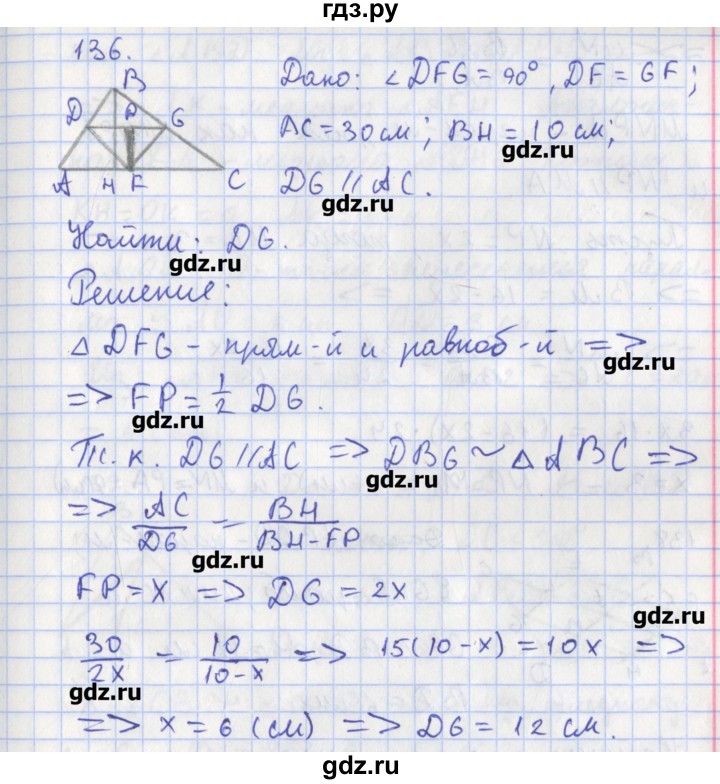 гдз.ру
136.
B
D P G
A H F C
Дано: ∠DFG = 90°, DF = GF;
AC = 30 см; BH = 10 см;
gdz.ru
DG // AC.
gdz.ru
Найти: DG.
gdz.ru
Решение:
△ DFG - прям-й и равноб-й =>
gdz.ru
=> FP = 1/2 DG.
gdz.ru
Т.к. DG // AC => DBG ~ △ ABC =>
gdz.ru
=> AC/DG = BH/BH-FP
gdz.ru
FP = x => DG = 2x
gdz.ru
30/2x = 10/10-x => 15(10-x) = 10x =>
gdz.ru
=> x = 6 (см) => DG = 12 см.
gdz.ru